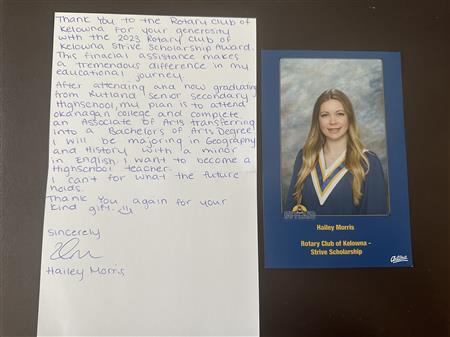 Thank You to the Rotary Club of
Kelowna for your generosity
with the 2023 Rotary Club of
Kelowna Strive Scholarship Award.
This finacial assistance makes
a tremendous difference in my
educational journey.
After attending and now graduating
from Rutland Senior secondary
Highschool, my plan is to attend
okanagan college and complete
an Associate of Arts transferring
into a Bachelors of Arts Degree.
I will be majoring in Geography
and History with a minor
in English. I want to become a
Highschool teacher.
I can't for what the future
holds.
Thank You again for your
kind gift.
sincerely
Hailey Morris
RUTLAND
Hailey Morris
Rotary Club of Kelowna -
Strive Scholarship